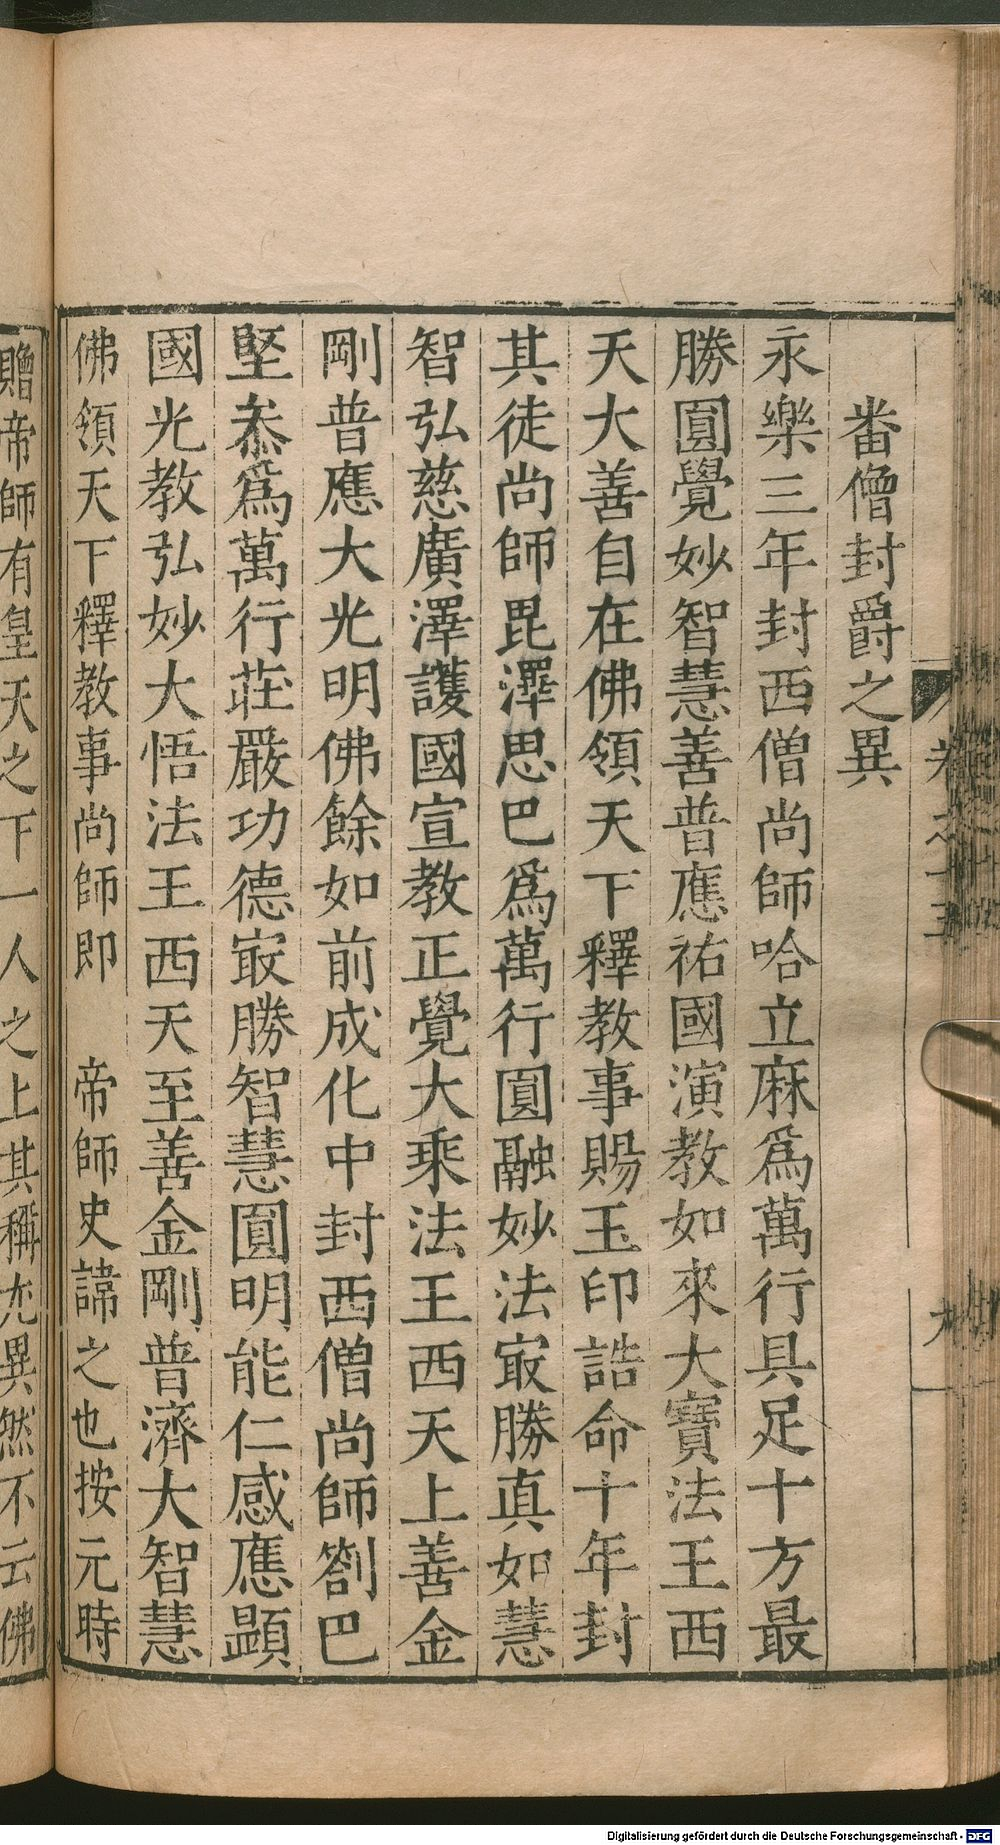 番僧封爵之異
永樂三年封西僧尚師哈立麻爲萬行具足十方最
勝圓覺妙智慧善普應祐國演教如來大寶法王西
天大善自在佛領天下釋教事賜玉印誥命十年封
其徒尚師毘澤思巴爲萬行圓融妙法㝡勝真如慧
智弘慈廣澤護國宣教正覺大乘法王西天上善金
剛普應大光明佛餘如前成化中封西僧尚師劄巴
堅叅爲萬行莊嚴功德㝡勝智慧圓明能仁感應顯
國光教弘妙大悟法王西天至善金剛普濟大智慧
佛領天下釋教事尚師即　帝師史諱之也按元時
贈帝師有皇天之下一人之上其稱尤異然不云佛
Digitalisierung gefördert durch die Deutsche Forschungsgemeinschaft - DFG